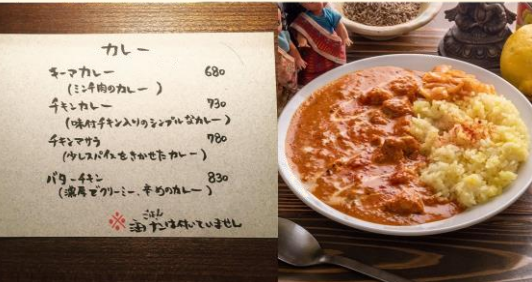 カレー
キーマカレー 680
(ミンチ肉のカレー)
チキンカレー 730
(味付チキン入りのシンプルなカレー)
チキンマサラ 780
(少しスパイスをきかせたカレー)
バターチキン 830
(濃厚でクリーミー、辛めのカレー)
ごはん
※ ナンは付いていません